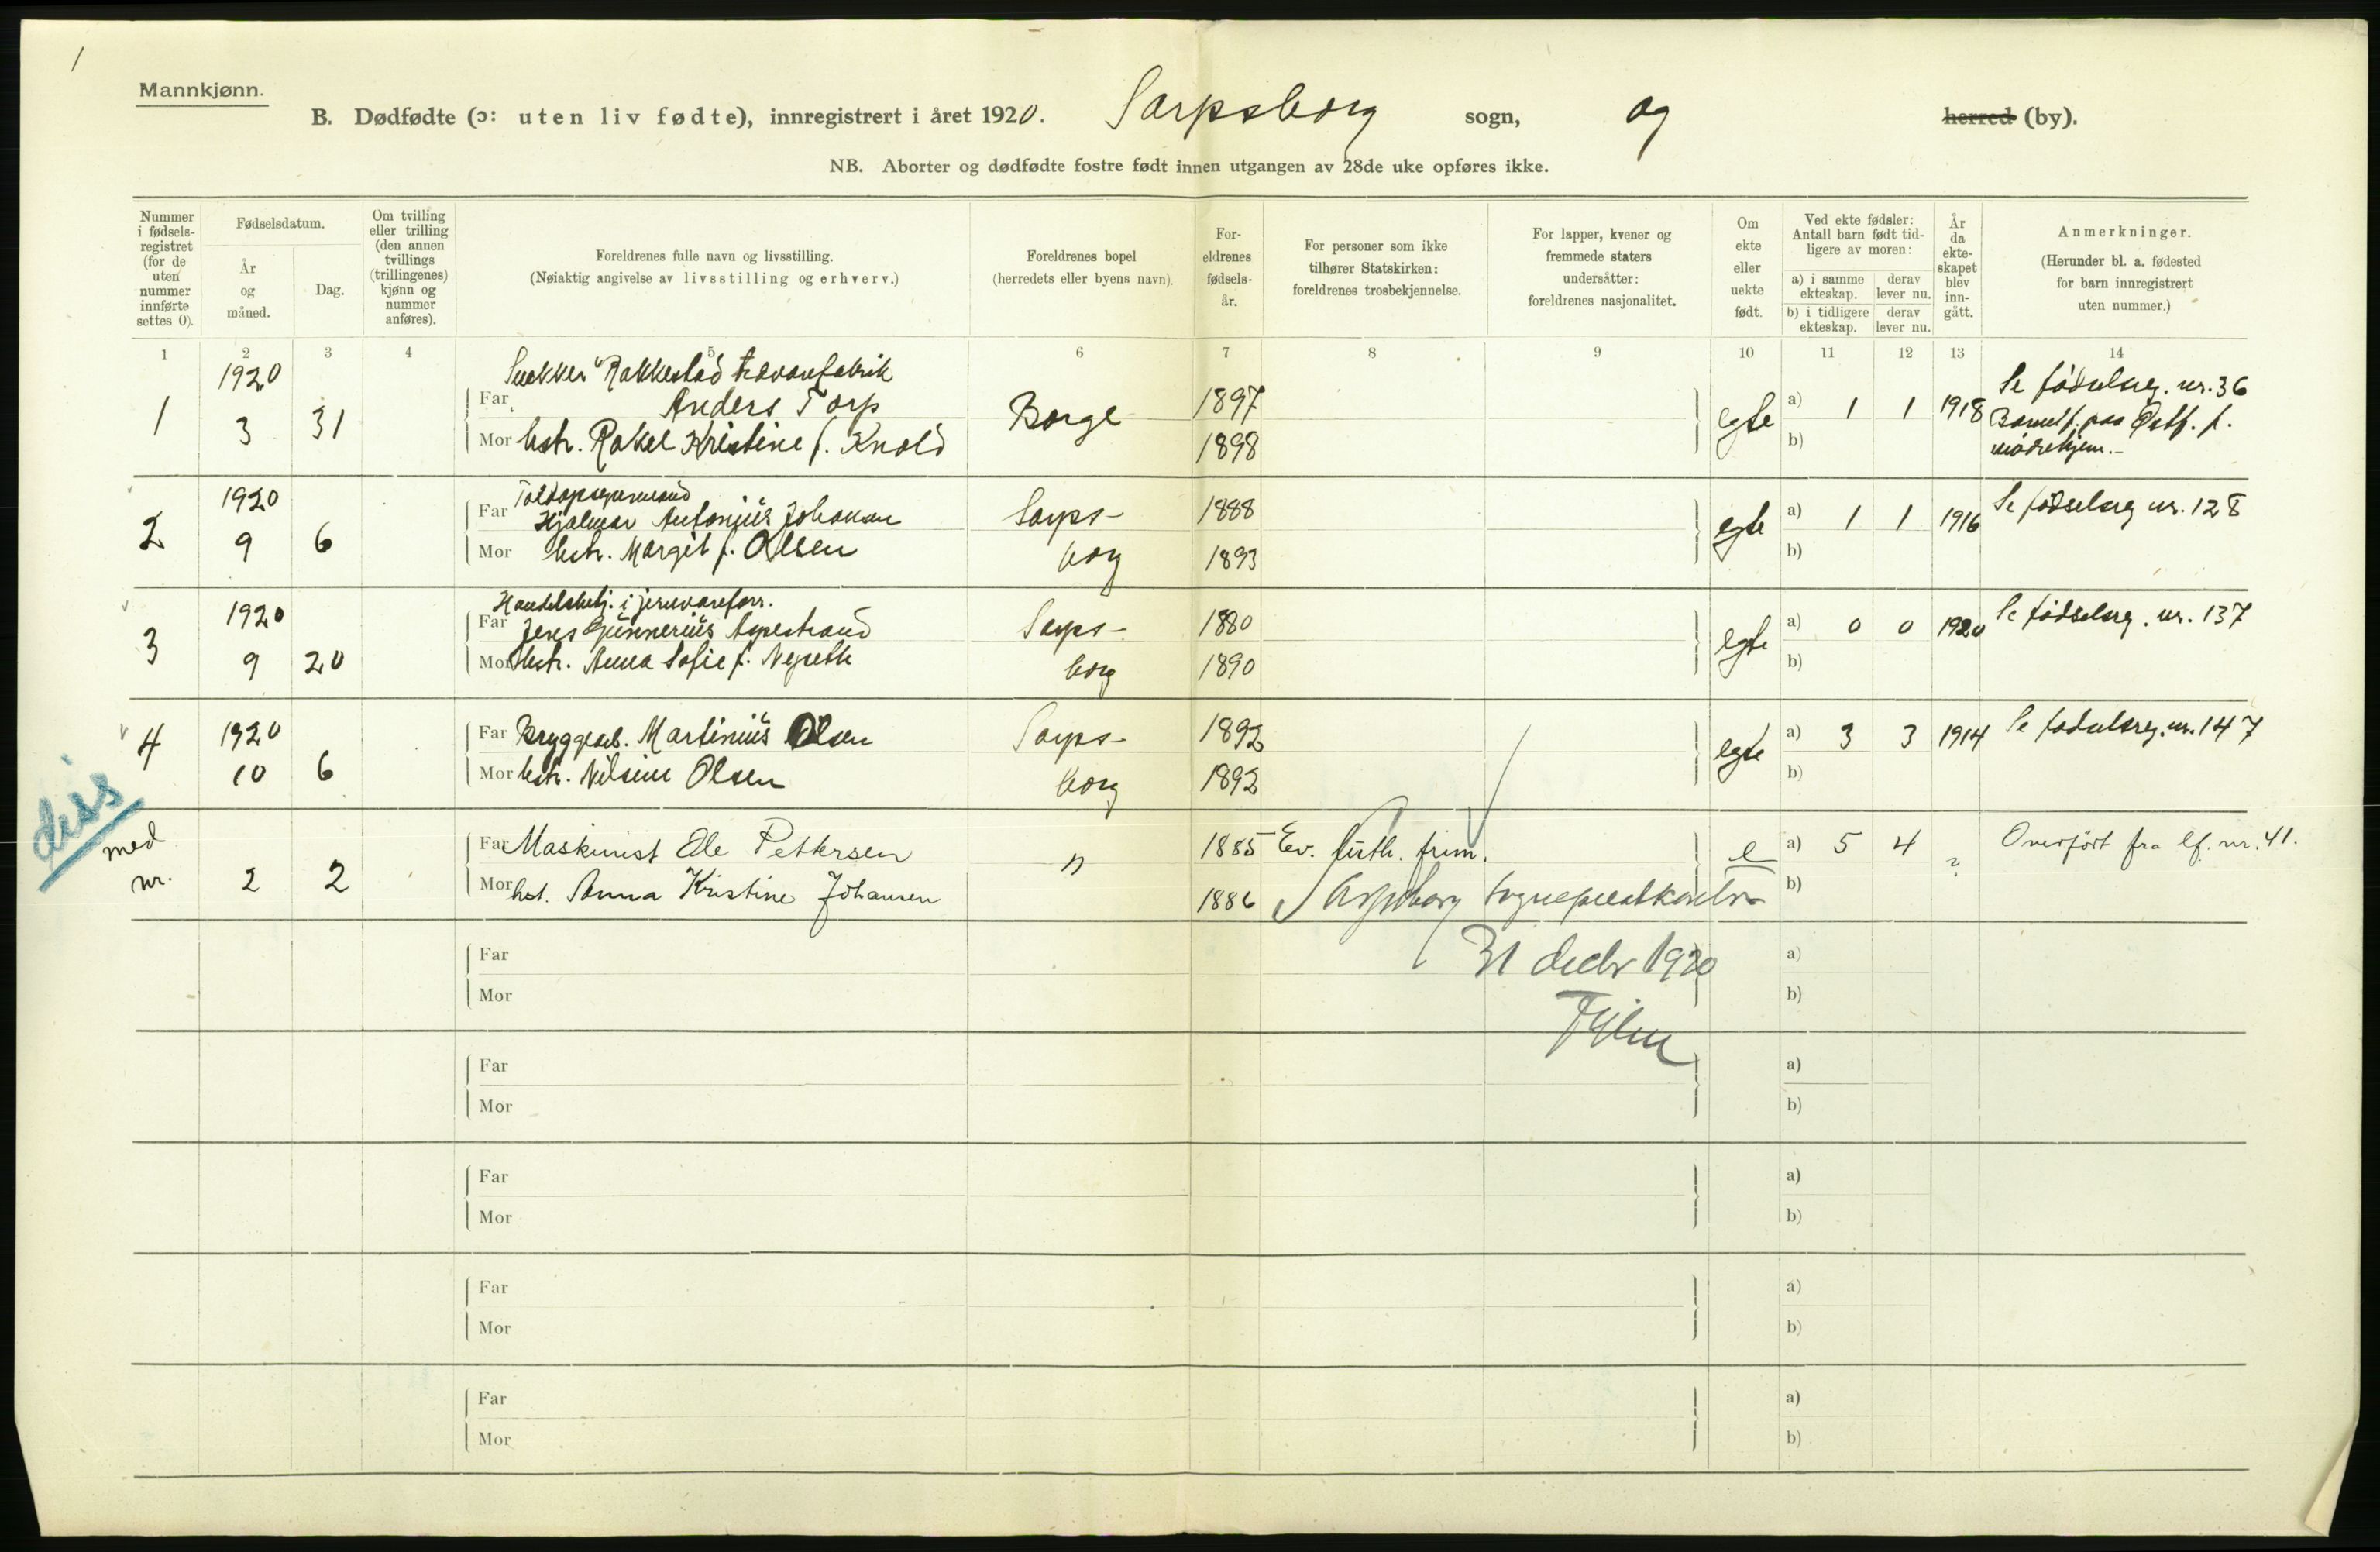 1
Mannkjønn.
B. Dødfødte (ɔ: uten liv fødte), innregistrert i året 1920. Sarpsborg sogn, og herred (by).
NB. Aborter og dødfødte fostre født innen utgangen av 28de uke opføres ikke.
Nummer i fødselsregistret (for de uten nummer innførte settes 0).
Fødselsdatum.
År og måned.
Dag.
Om tvilling eller trilling (den annen tvillings (trillingenes) kjønn og nummer anføres).
Foreldrenes fulle navn og livsstilling.
(Nøiaktig angivelse av livsstilling og erhverv.)
Foreldrenes bopel
(herredets eller byens navn).
Foreldrenes fødselsår.
For personer som ikke tilhører Statskirken: foreldrenes trosbekjennelse.
For lapper, kvener og fremmede staters undersåtter: foreldrenes nasjonalitet.
Om ekte eller uekte født.
Ved ekte fødsler: Antall barn født tidligere av moren:
a) i samme ekteskap. derav lever nu.
b) i tidligere ekteskap. derav lever nu.
År da ekteskapet blev inngått.
Anmerkninger.
(Herunder bl. a. fødested for barn innregistrert uten nummer.)
1 2 3 4 5 6 7 8 9 10 11 12 13 14
1920 Snekker Rakkestad trævarefabrik Se fødselsreg. nr. 36
1 3 31 Far Anders Torp Borge 1897 egte a) 1 1 1918 paa Østf. f.
Mor hstr. Rakel Kristine f. Knold 1898 b) mødrehjem.-
1920 Toldopsynsmand
2 9 6 Far Hjalmar Antonius Johansen Sarps- 1888 egte a) 1 1 1916 Se fødselsreg nr. 128
Mor hstr. Margit f. Olsen borg 1893 b)
1920 Handelsbetj. i jernvareforr.
3 9 20 Far Jens Gunnerius Aspestrand Sarps- 1880 egte a) 0 0 1920 Se fødselsreg. nr. 137
Mor hstr. Anna Sofie f. borg 1890 b)
4 1920 Far Bryggearb. Martinius Olsen Sarps- 1892 egte a) 3 3 1914 Se fødselsreg. nr. 147
10 6 Mor hstr. Nilsine Olsen borg 1892 b)
diss
med nr. 2 2 Far Maskinist Ole Pettersen " 1885 Ev. luth. frim. e a) 5 4 ? Overført fra lf. nr. 41.
Mor hst. Anna Kristine Johansen 1886 Sarpsborg sogneprestkontor b)
Far 31 decbr 1920 a)
Mor b)
Far a)
Mor b)
Far a)
Mor b)
Far a)
Mor b)
Far a)
Mor b)